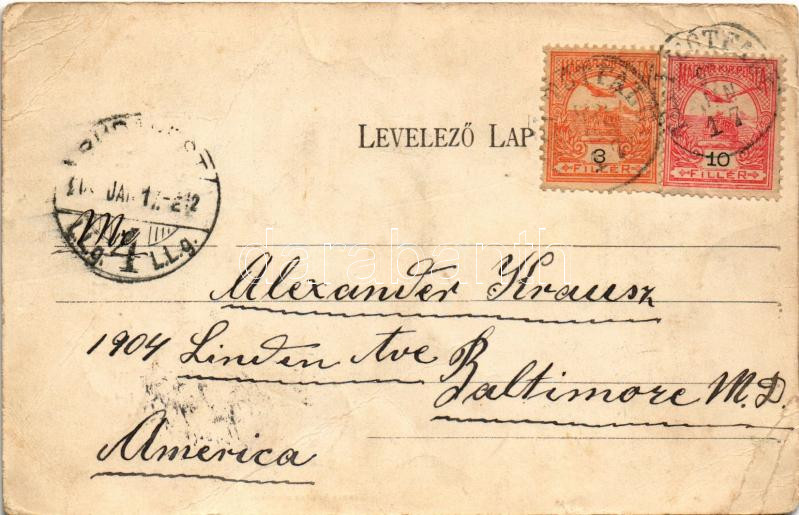 LEVELEZŐ LAP
MAGYAR KIR. POSTA
MAGYAR KIR. POSTA
3
FILLÉR
10
FILLÉR
JAN
17
BUDAPEST
JAN 17
4
I.I.g.
Mr
Alexander Krausz
1904 Linden Ave Baltimore M.D.
America
darabanth